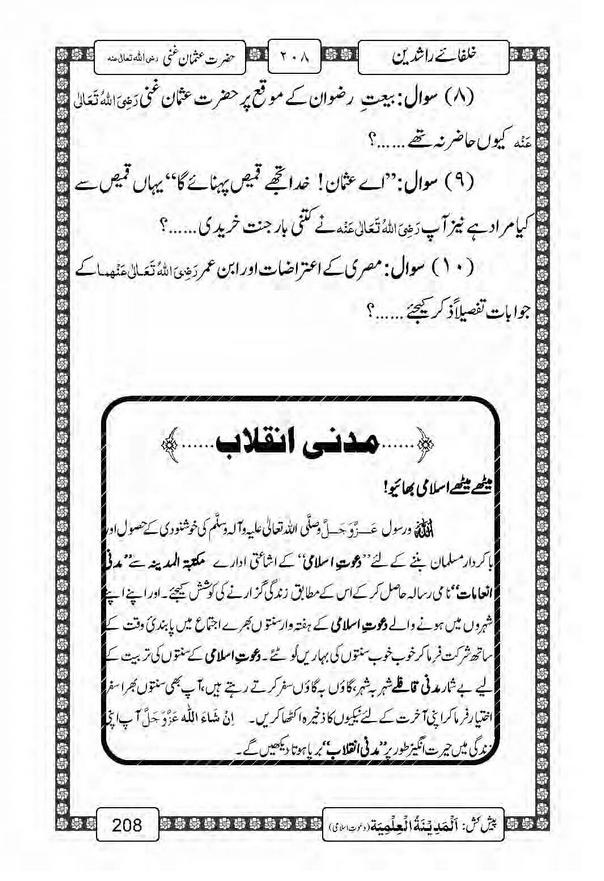 خلفائے راشدین
۲۰۸
حضرت عثمان غنی رضی اللہ تعالیٰ عنہ
(۸) سوال: بیعتِ رضوان کے موقع پر حضرت عثمان غنی رَضِیَ اللہُ تَعَالٰی
عَنْہ کیوں حاضر نہ تھے ......؟
(۹) سوال: ”اے عثمان! خدا تجھے قمیص پہنائے گا“ یہاں قمیص سے
کیا مراد ہے نیز آپ رَضِیَ اللہُ تَعَالٰی عَنْہ نے کتنی بار جنت خریدی ......؟
(۱۰) سوال: مصری کے اعتراضات اور ابن عمر رَضِیَ اللہُ تَعَالٰی عَنْھما کے
جوابات تفصیلاً ذکر کیجئے ......؟
......مدنی انقلاب......
میٹھے میٹھے اسلامی بھائیو!
اللہ ورسول عَزَّوَجَلَّ وصلَّی اللہ تعالیٰ علیہ وآلہ وسلَّم کی خوشنودی کے حصول اور
باکردار مسلمان بننے کے لئے ”دعوتِ اسلامی“ کے اشاعتی ادارے مکتبۃ المدینہ سے ”مدنی
انعامات“ نامی رسالہ حاصل کر کے اس کے مطابق زندگی گزارنے کی کوشش کیجئے۔ اور اپنے اپنے
شہروں میں ہونے والے دعوتِ اسلامی کے ہفتہ وار سنتوں بھرے اجتماع میں پابندیٔ وقت کے
ساتھ شرکت فرما کر خوب خوب سنتوں کی بہاریں لُوٹئے۔ دعوتِ اسلامی کے سنتوں کی تربیت کے
لیے بے شمار مدنی قافلے شہر بہ شہر، گاؤں بہ گاؤں سفر کرتے رہتے ہیں، آپ بھی سنتوں بھرا سفر
اختیار فرما کر اپنی آخرت کے لئے نیکیوں کا ذخیرہ اکٹھا کریں۔ اِنْ شَاءَ اللہ عَزَّوَجَلَّ آپ اپنی
زندگی میں حیرت انگیز طور پر ”مدنی انقلاب“ برپا ہوتا دیکھیں گے۔
پیش کش: اَلْمَدِیْنَۃُ الْعِلْمِیَۃ (دعوتِ اسلامی)
208